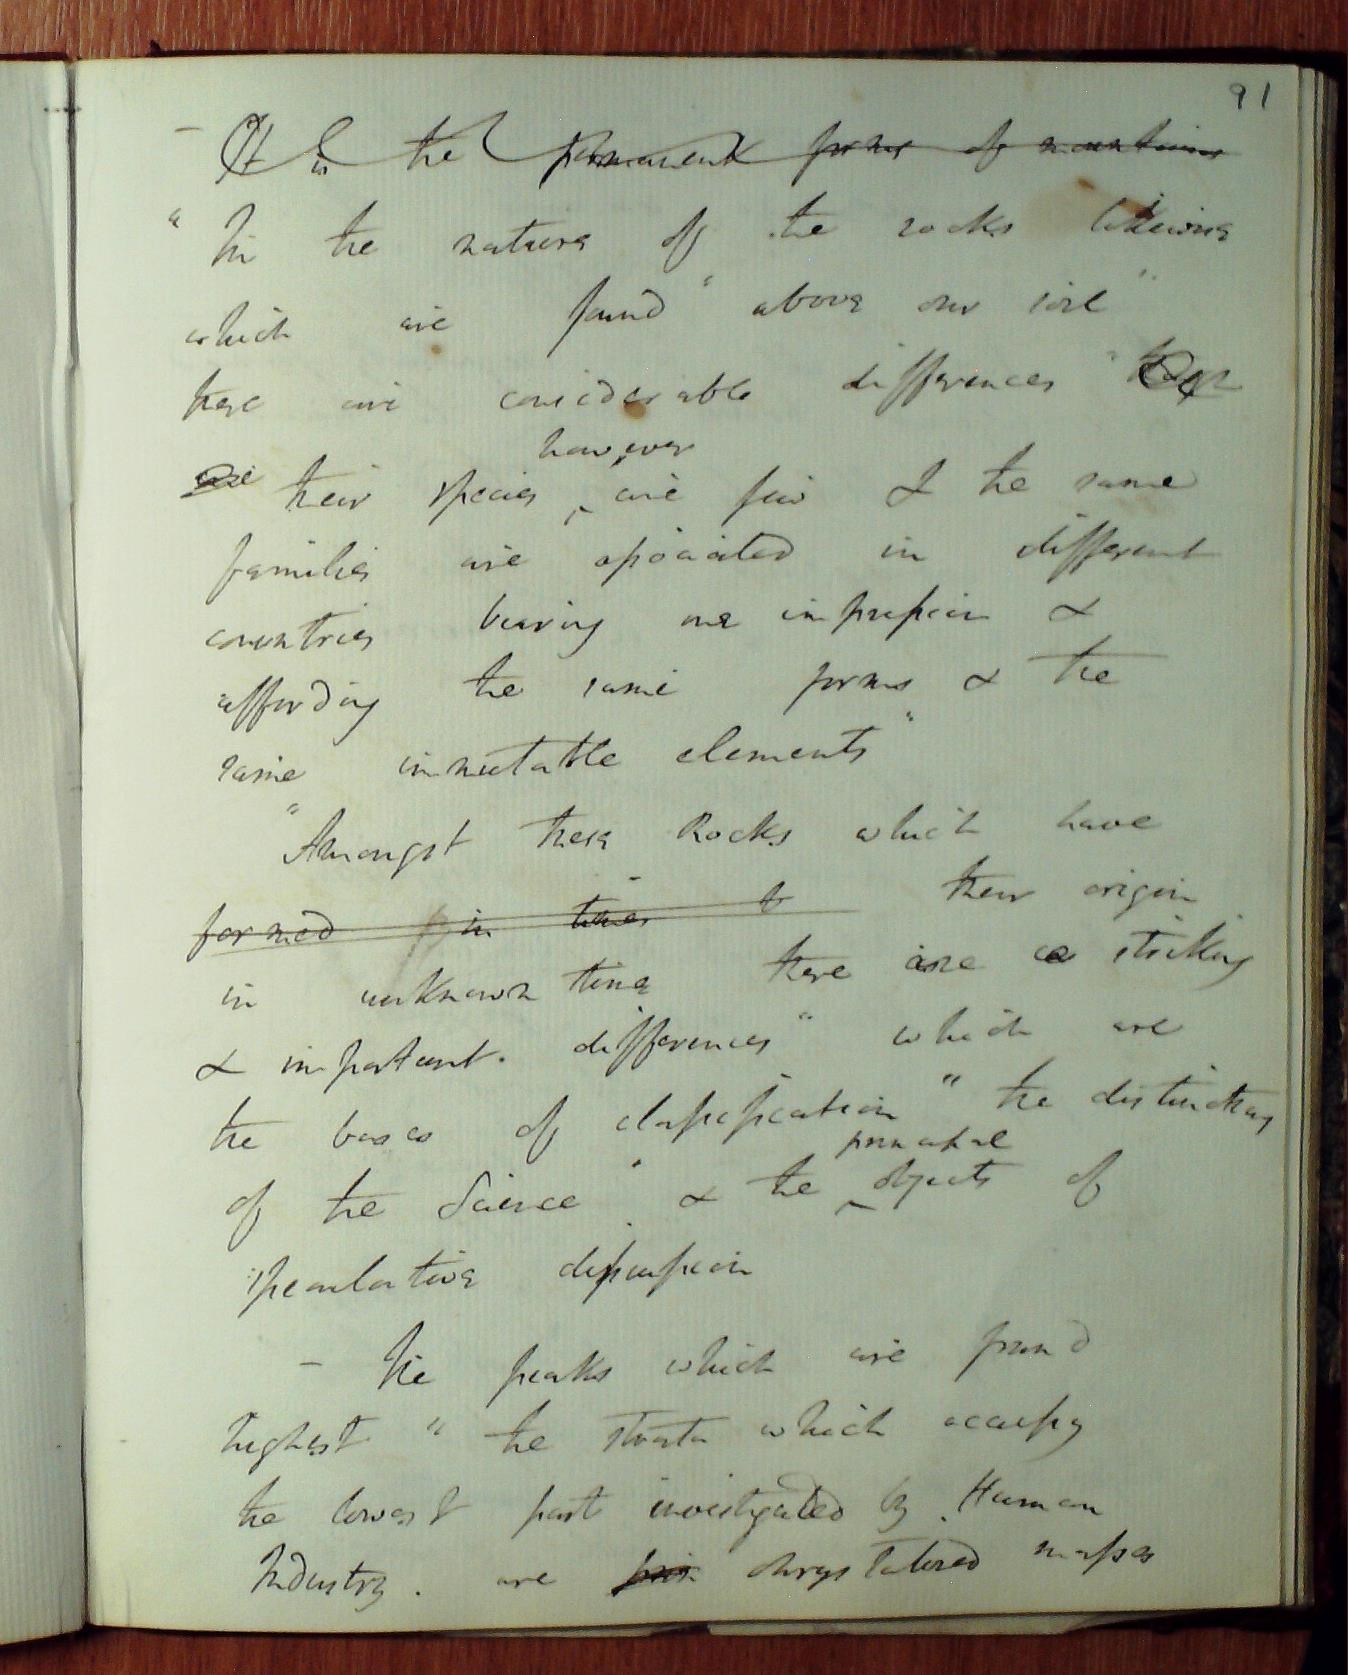 91
- It is the permanent forms of mountains
" In the nature of the rocks likewise
which are found " above our soil "
there are considerable differences "
however
their species are few & the same
families are associated in different
countries bearing one impression &
affording the same forms & the
same immutable elements "
"Amongst these Rocks which have
formed in times to their origin
in unknown time there are striking
& important. differences " which are
the bases of classification " the distinctions
principal
of the Science " & the objects of
speculative discussion
- The peaks which are found
highest " the strata which occupy
the lowest part investigated by Human
Industry. are chrystalized masses